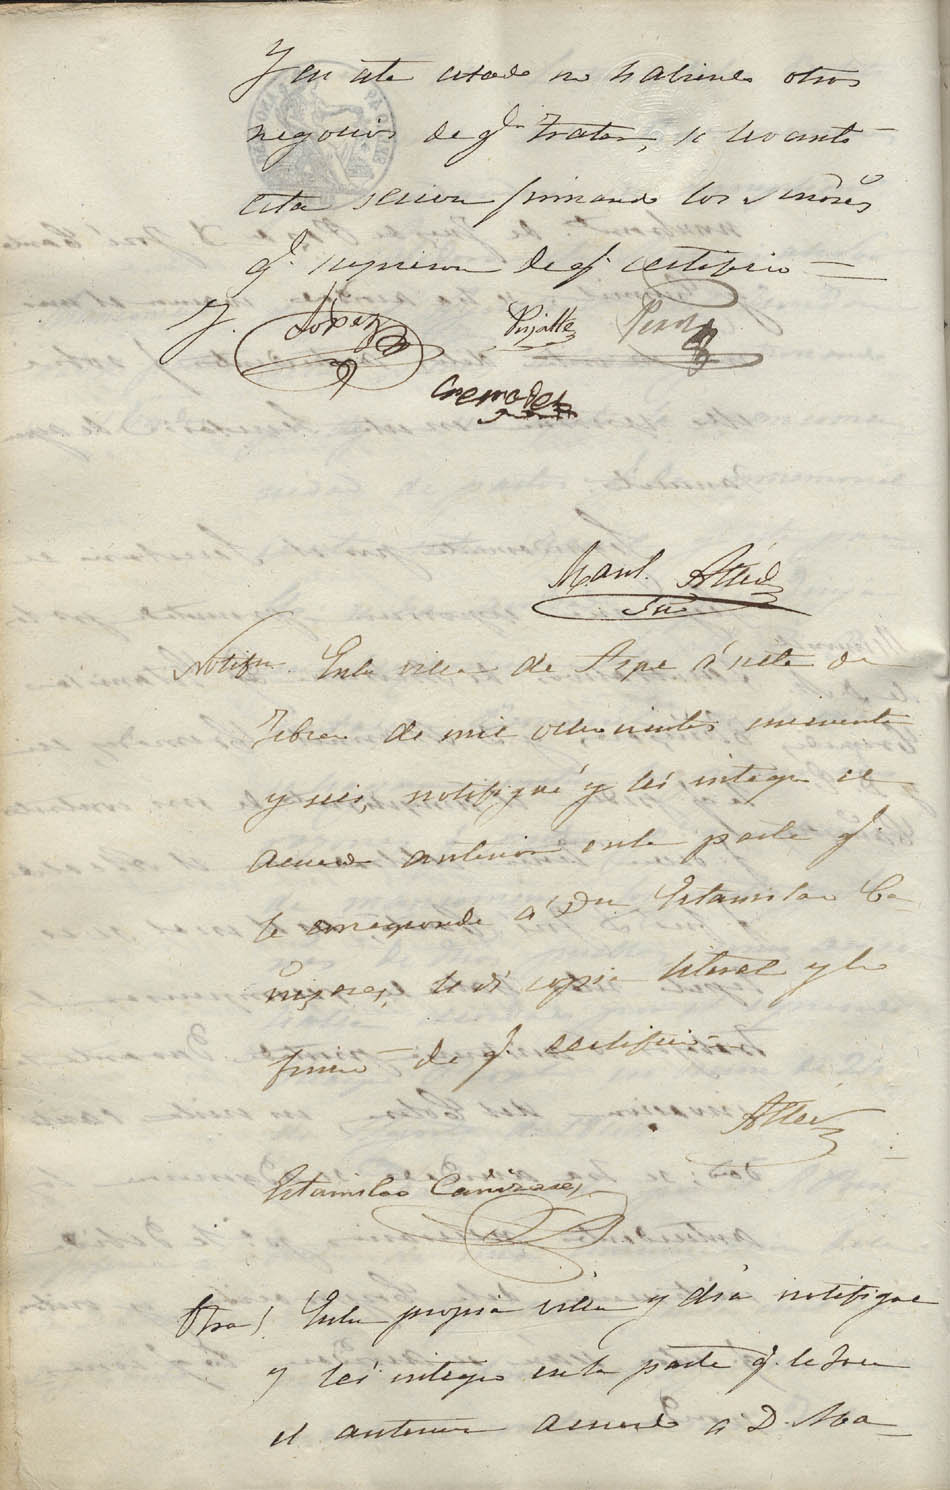 Y en este estado no habiendo otros
negocios de qe. tratar, se levantó
esta sesion firmando los señores
qe. supieron de qe. certifico
J. Lopez Pujalte
Cremades
Manl. Alted
Srio
Notifn. En la villa de Aspe á siete de
Febro. de mil ochocientos cincuenta
y seis, notifiqué y leí integro el
acuerdo anterior en la parte qe.
le corresponde á Dn. Estanislao Ca
ñizares, le dí copia literal y lo
firmó de qe. certifico
Alted
Estanislao Cañizares
Otra) En la propia villa y dia notifique
y leí integro en la parte qe. le toca
el anterior acuerdo a D. Ma-